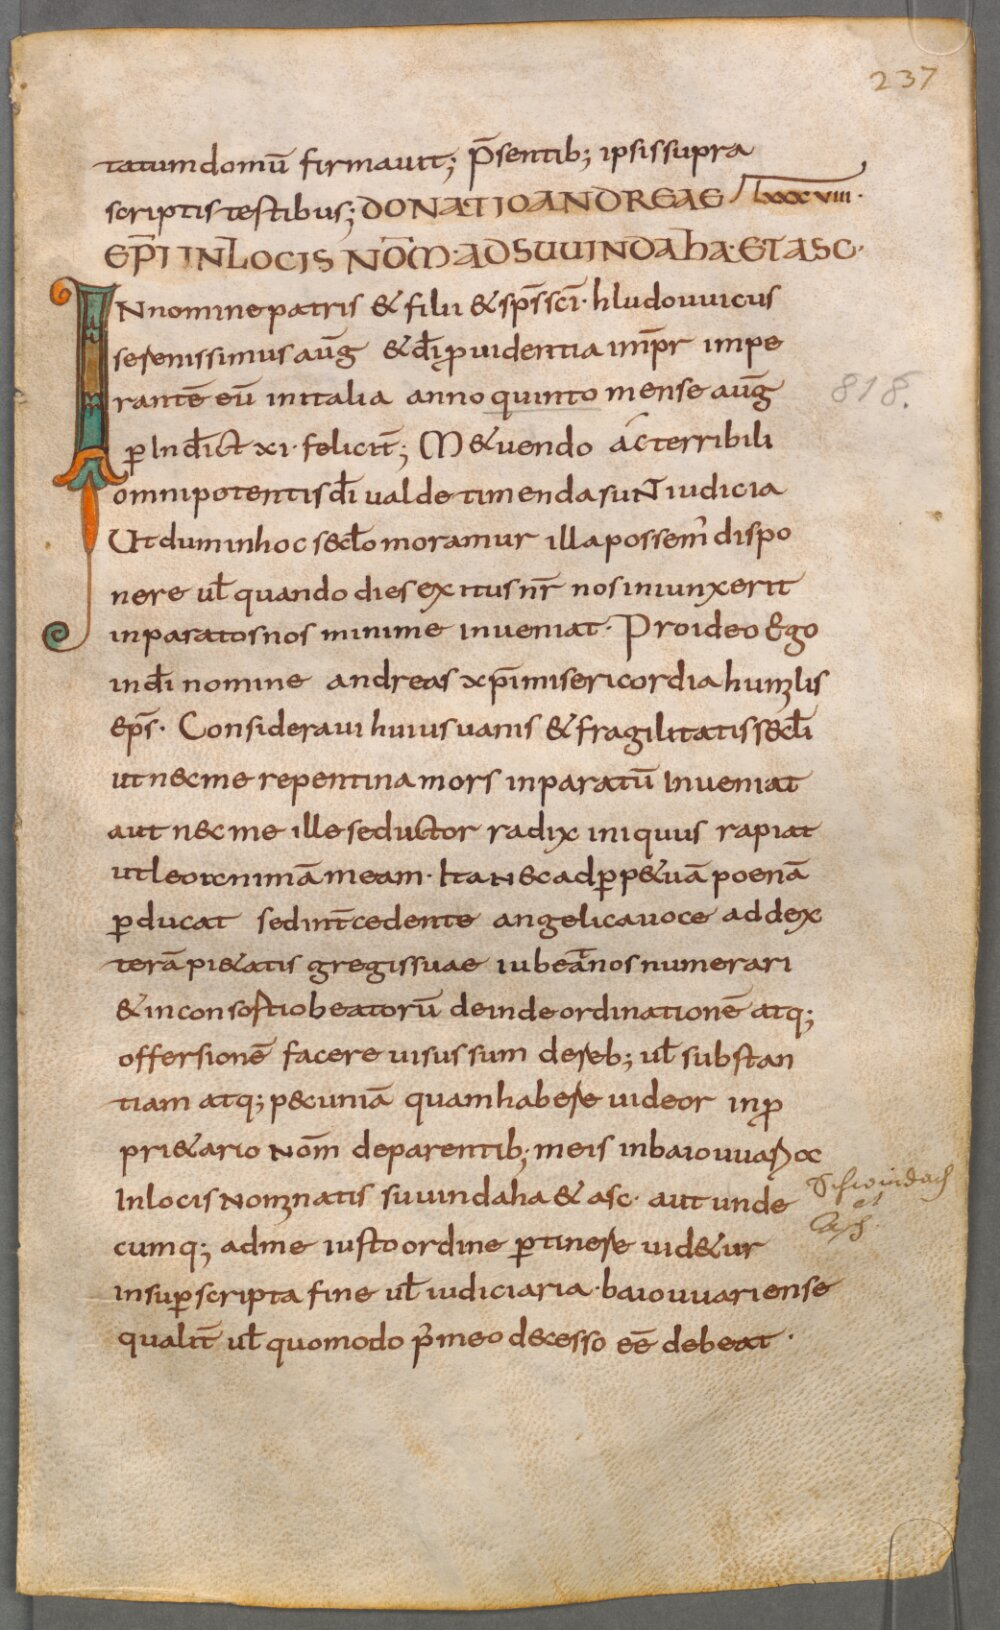 237
tatum domū firmauit; p̄sentib; ipsis supra
scriptis testibus; DONATIO ANDREAE Lxxxviii·
EP̄I IN LOCIS NOM̄·AD SUUINDAhA·ET ASC·
IN nomine patris & filii & sp̄s sc̄i· hludouuicus
serenissimus aūg & dī ꝓuidentia imp̄r impe
rantē eū in italia anno quinto mense aūg
ꝑ Indict̄ xi· felicit̄; Metuendo ac terribili
omnipotentis dī ualde timenda sunt iudicia
Ut dum in hoc secl̄o moramur illa possem᾽ dispo
nere ul̄ quando dies exitus nr̄ nos iniunxerit
inparatos nos minime inueniat· Pro ideo Ego
in dī nomine andreas xp̄i misericordia humilis
ep̄s· Consideraui huius uanis & fragilitatis secl̄i
ut nec me repentina mors inparatū Inueniat
aut nec me ille seductor radix iniquus rapiat
ut leo animā meam· Ita nec ad ꝑp&uā poenā
ꝑducat sed int̄cedente angelica uoce ad dex
terā pi&atis gregis suae iubeat̄ nos numerari
& in consortio beatorū deinde ordinationē atq;
offersionē facere uisus sum de reb; ul̄ substan
tiam atq; pecuniā quam habere uideor in ꝓ
pri&ario nom̄ de parentib; meis in baiouuarioꝝ
In locis nominatis suuindaha & asc· aut unde
Schwindach
et
Asch.
cumq; ad me iusto ordine ꝑtinere uid&ur
in suꝑscripta fine ul̄ iudiciaria· baiouuariense
qualit̄ ul̄ quomodo p᾽ meo decesso eē debeat·
818.